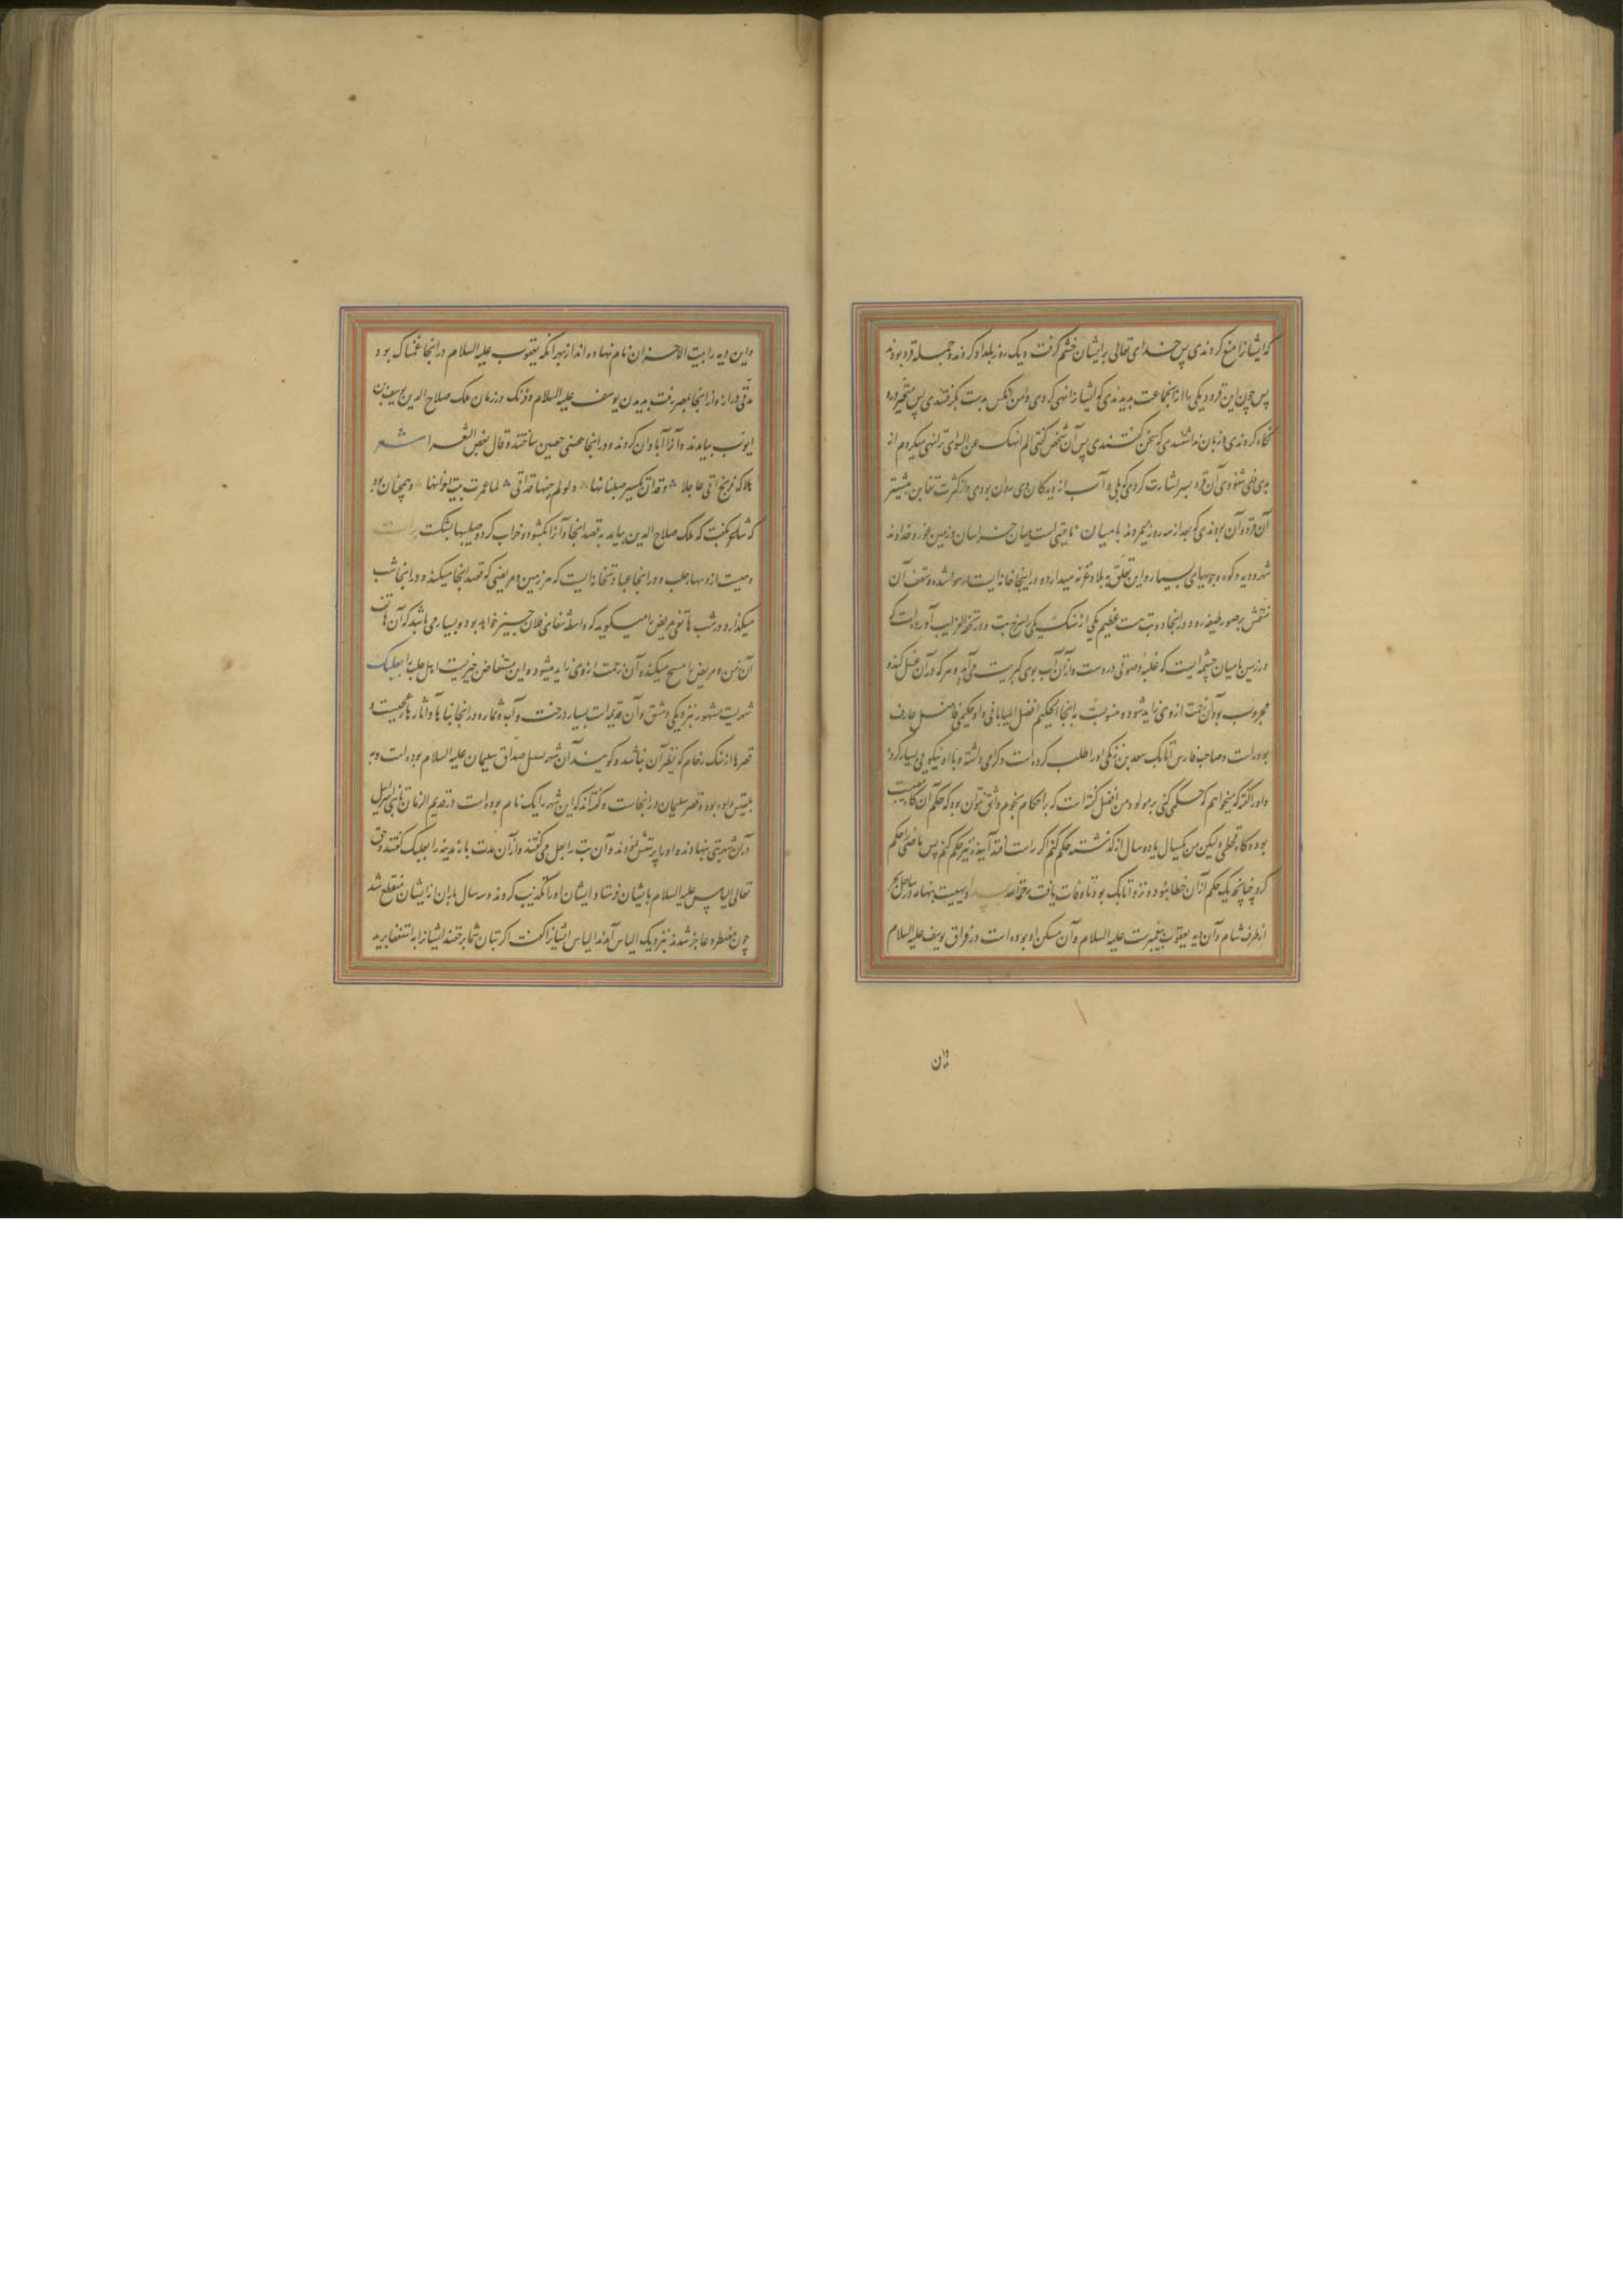 که ایشانرا منع کردندی پس خدای تعالی برایشان خشم گرفت و یک روز بامداد کردند و جمله قرد بودند
پس چون این قرود یکی را از آنجماعت بدیدندی که ایشانرا نهی کردی دامن آنکس بدست بگرفتندی پس متحیر درو
نگاه کردندی و زبان نداشتندی که سخن گفتندی پس آن شخص گفتی الم انهک عن السوء ترا نهی میکردم از
بدی نمی شنودی آن قرد بسر اشارت کردی که بلی و آب از دیدگان وی روان بودی و از کثرت تغابن بیشتر
آن قرده آن بودندی که بعد از سه روز بمردند بامیان ناحیتی است میان خراسان و زمین غور و خداوند
شهر و دیه و کوه و جویهای بسیار و این تعلق به بلاد غزنه میدارد و در اینجا خانه ایست بر هوا شده و سقف آن
منقش بر صور طیف و در آنجا دو بت هست عظیم یکی از سنگ یکی را سرخ بت و در تحفة الغرایب آورده است که
در زمین بامیان چشمه ایست که غلبه و صوتی در وست و از آن آب بوی کبریت می آید و هر که در آن غسل کند و
مجروب بود آن زحمت از وی زاید شود و منسوبست به اینجا الحکیم افضل البامیانی و او حکیمی فاضل عارف
بوده است و صاحب فارس اتابک سعد بن زنگی او را طلب کرده است و گرامی داشته و با او نیکویی بسیار کرد
و او را گفته که میخواهم که حکمی کنی بر مولود من افضل گفته است که بر احکام نجوم واثق نتوان بود که حکم آن گاه مصیب
بود و گاه مخطی ولیکن من یکسال یا ده سال از گذشته حکم کنم اگر راست افتد آینده نیز حکم کنم پس ماضی را حکم
کرد چنانچه یک حکم از آن خطا نبود و نزد اتابک بود تا وفات یافت رحمة الله بیت بنهار در ساحل بحر
از طرف شام و آن دیه یعقوب پیغمبرست علیه السلام و آن مسکن او بوده است در فراق یوسف علیه السلام
واین
واین دیه را بیت الاحزان نام نهاده اند از بهر آنکه یعقوب علیه السلام در آنجا غمناک بود
مدتی دراز و از آنجا بمصر رفت بدیدن یوسف علیه السلام و فرنگ در زمان ملک صلاح الدین یوسف بن
ایوب بیامدند و آنرا آبادان کردند و در آنجا حصنی حصین ساختند و قال بعض الشعرا شعر
هلاک فرنج اتی عاجلا وقد آن تکسیر صلبانها ولو لم حینها قد اتی لما عمرت بیت احزانها و همچنان بود
که شاعر بگفت که ملک صلاح الدین بیامد به قصد آنجا و آنرا بگشود و خراب کرد و صلیبها بشکست
دهیست از دیهاء حلب و در آنجا عبادتخانه ایست که هر زمین و مریضی که قصد آنجا میکند و در آنجا شب
میگذارد در شب هاتفی مریض را میگوید که واسطه شفای فلان چیز خواهد بود و بسیار می باشد که آن هاتف
آن زمن و مریض را مسح میکند و آن زحمت از وی زاید میشود و این مستفاض خیریست اهل حلب را بعلبک
شهریست مشهور بنزدیکی دمشق و آن قدیم است بسیار درخت و آب و ثمار و در آنجا بناها و آثارهاء عجیبست و
قصرها از سنگ رخام که نظیر آن نباشد و گویند آن شهر صداق سلیمان علیه السلام بوده است و به
بلقیس داده بود و قصر سلیمان در آنجاست و گفته اند که این شهر را بک نام بوده است در قدیم الزمان تا بنی اسرایل
در آن شهر بتی بنهادند و او را پرستش نمودند و آن بت را بعل می گفتند و از آن مدت باز مدینه را بعلبک گفتند و حق
تعالی الیاس علیه السلام بایشان فرستاد ایشان او را تکذیب کردند و سه سال باران از ایشان منقطع شد
چون مضطر و عاجز شدند بنزدیک الیاس آمدند الیاس ایشانرا گفت اگر بتان شما بر حقند ایشانرا به استسقا برید